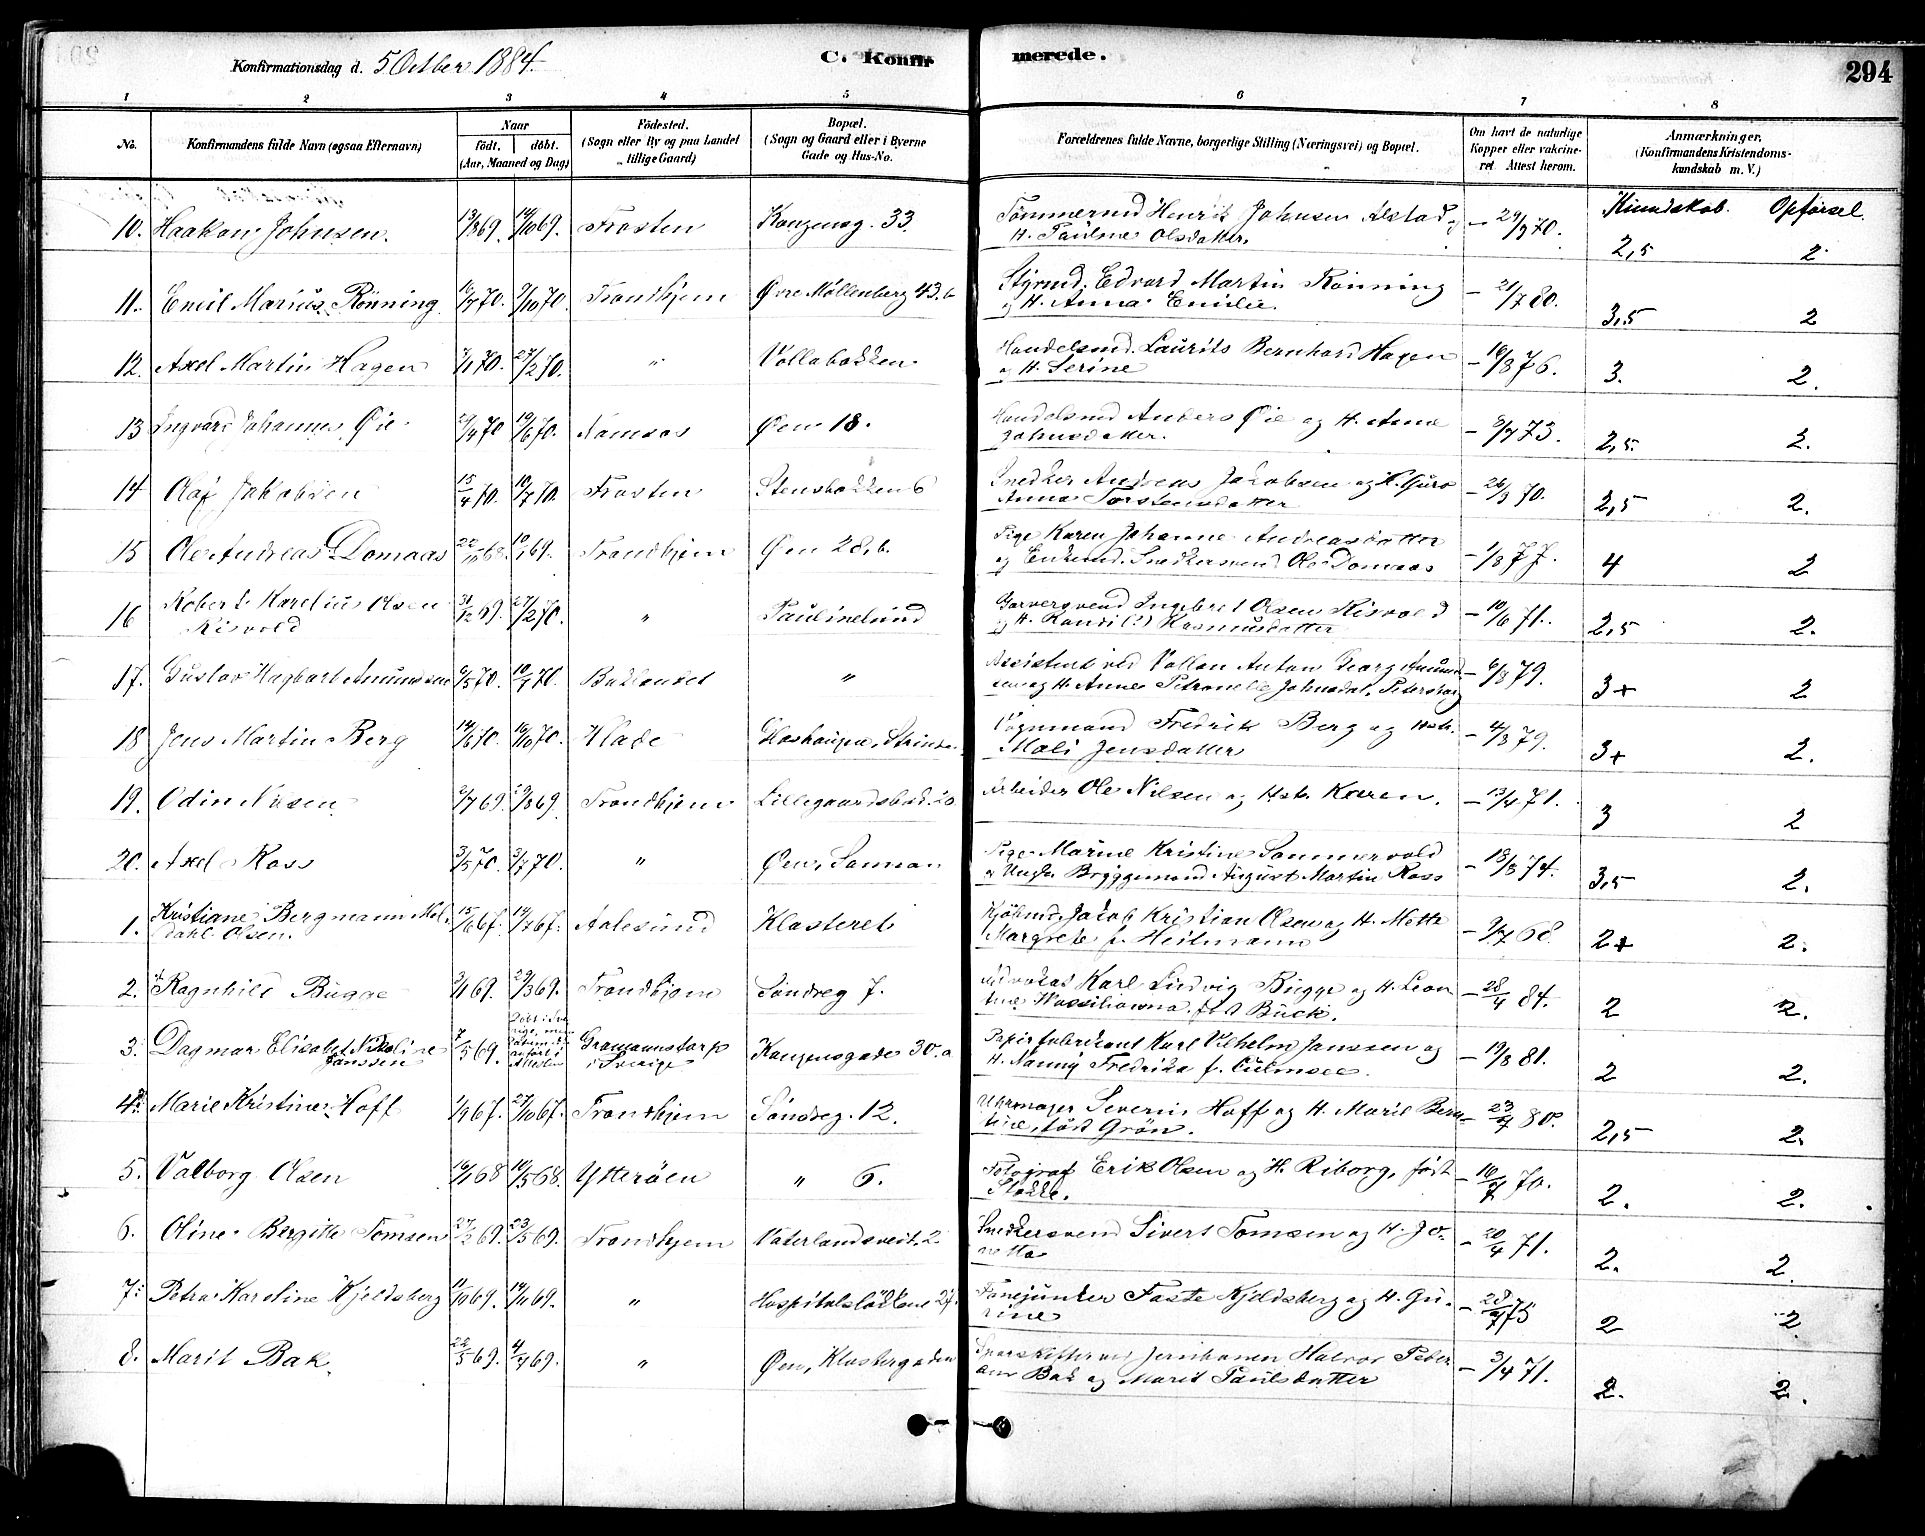 Konfirmationsdag d. 5 October 1884.
C. Konfirmerede.
294
1 2 3 4 5 6 7 8
No.
Konfirmandens fulde Navn (ogsaa Efternavn)
Naar
födt. döbt.
(Aar, Maaned og Dag)
Födested.
(Sogn eller By og paa Landet
tillige Gaard)
Bopæl.
(Sogn og Gaard eller i Byerne
Gade og Hus-No.
Forældrenes fulde Navne, borgerlige Stilling (Næringsvei) og Bopæl.
Om havt de naturlige
Kopper eller vakcine-
ret. Attest herom.
Anmærkninger,
(Konfirmandens Kristendoms-
kundskab m. V.)
Kundskab. Opförsel.
10. Haakon Johnsen. 13/8 69. 14/10 69. Frosten Kongensg. 33. Tömmermd Henrik Johnsen Alstad og - 29/9 70. 2,5 2.
H. Pauline Olsdatter.
11. Emil Marius Rönning 16/7 70. 9/10 70. Trondhjem Övre Möllenberg 43.b Styrmd. Edvard Martin Rönning - 21/7 80. 3,5 2
og H. Anna Emilie.
12. Axel Martin Hagen 7/1 70. 27/2 70. " Vollabakken Handelsmd. Laurits Bernhard Hagen - 16/8 76. 3. 2.
og H. Serine
13 Ingvard Johannes Öie 29/4 70 19/6 70. Namsos Öen 18. Handelsmd Anders Öie og H. Anne - 9/7 73. 2,5. 2.
Johnsdatter.
14 Olaf Jakobsen 15/4 70. 10/7 70. Frosten Stensbakken 6 Snedker Andreas Jakobsen og H. Guro - 26/9 70. 2,5 2.
Anna Torstensdatter
15 Ole Andreas Domaas 22/10 68. 10/1 69. Trondhjem Öen 28,b. Pige Karen Johanne Andreasdatter - 1/8 77. 4 2
og Enkemd. Snedkersvend Ole Domaas
16 Robert Karelius Olsen 31/12 69. 27/2 70. " Paulinelund Garversvend Ingebret Olsen Risvold - 10/6 71. 2,5 2.
Risvold og H. Randi (!) Rasmusdatter
17. Gustav Hagbart Amundsen 6/5 70. 10/7 70. Baklandet " Assistent ved Vollan Anton Georg Amund- - 6/8 79. 3+ 2
sen og H. Anne Petronelle Johnsdat. Petersborg
18 Jens Martin Berg 14/6 70. 16/10 70. Hlade Haskaupen, Strinden Vognmand Fredrik Berg og Hstr. - 4/3 79. 3+ 2.
Mali Jensdatter
19. Odin Nilsen 2/7 69. 29/8 69. Trondhjem Lillegaardsbak. 20 Arbeider Ole Nilsen og Hstr. Karen. - 13/4 71. 3 2
20. Axel Ross 3/5 70. 3/7 70. " Öen, Sannan Pige Marine Kristine Sommervold - 18/8 74. 3,5 2.
og Ungk. Bryggemand August Martin Ross
1. Kristiane Bergmann Mel- 15/6 67. 14/7 67. Aalesund Klosteret Kjöbmd. Jacob Kristian Olsen og H. Mette - 9/7 68 2+ 2.
dahl Olsen. Margrete f. Heitmann
2. Ragnhild Bugge 9/1 69. 29/3 69. Trondhjem Söndreg 7. Advokat Karl Ludvig Bugge og H. Leon- - 28/4 84. 2 2.
tine Wassiliowna f. Buck.
3. Dagmar Elisabet Nikoline 7/5 69. Gramanstorp Kongensgade 30.a Papirfabrikant Karl Vilhelm Janssen og - 19/8 81. 2 2.
Janssen i Sverige H. Nanny Fredrika f. Culmsee.
4. Marie Kristine Hoff 1/9 67. 27/10 67. Trondhjem Söndreg. 12. Uhrmager Severin Hoff og H. Marie Bern- - 23/7 80. 2,5 2.
tine, född Grön.
5. Valborg Olsen 16/1 68 10/5 68. Ytteröen " 6. Fotograf Erik Olsen og H. Riborg, född - 16/7 70. 2. 2.
Stokke.
6. Oline Bergitte Tomsen 27/2 69. 23/5 69. Trondhjem Vaterlandsveit. 2. Snedkersvend Sivert Tomsen og H. Jo- - 20/4 71. 2. 2.
netta
7. Petra Karoline Kjeldsberg 11/10 69. 14/11 69. " Hospitalslökkene 27. Fanejunker Faste Kjeldsberg og H. Gu- - 28/7 75 2 2.
rine
8. Marit Bak. 22/5 69. 4/7 69. " Öen, Klostergaden Sporskifter ved Jernbanen Halvor Peter - 3/4 71. 2. 2.
Bak og Marit Paulsdatter